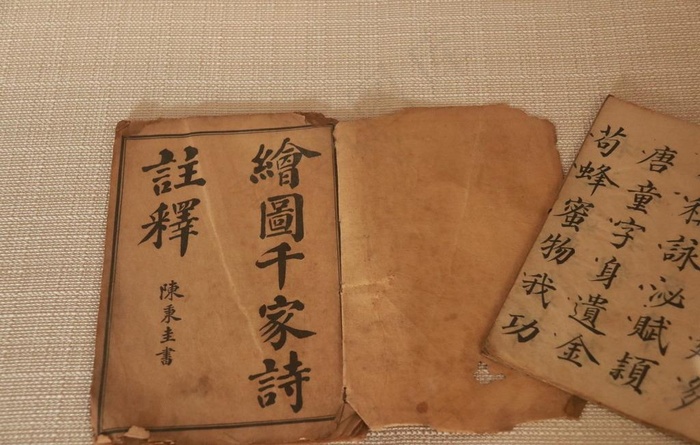 繪圖千家詩
註釋
陳秉圭書
詠泌賦穎
唐童字身遺金
荀蜂蜜物我功